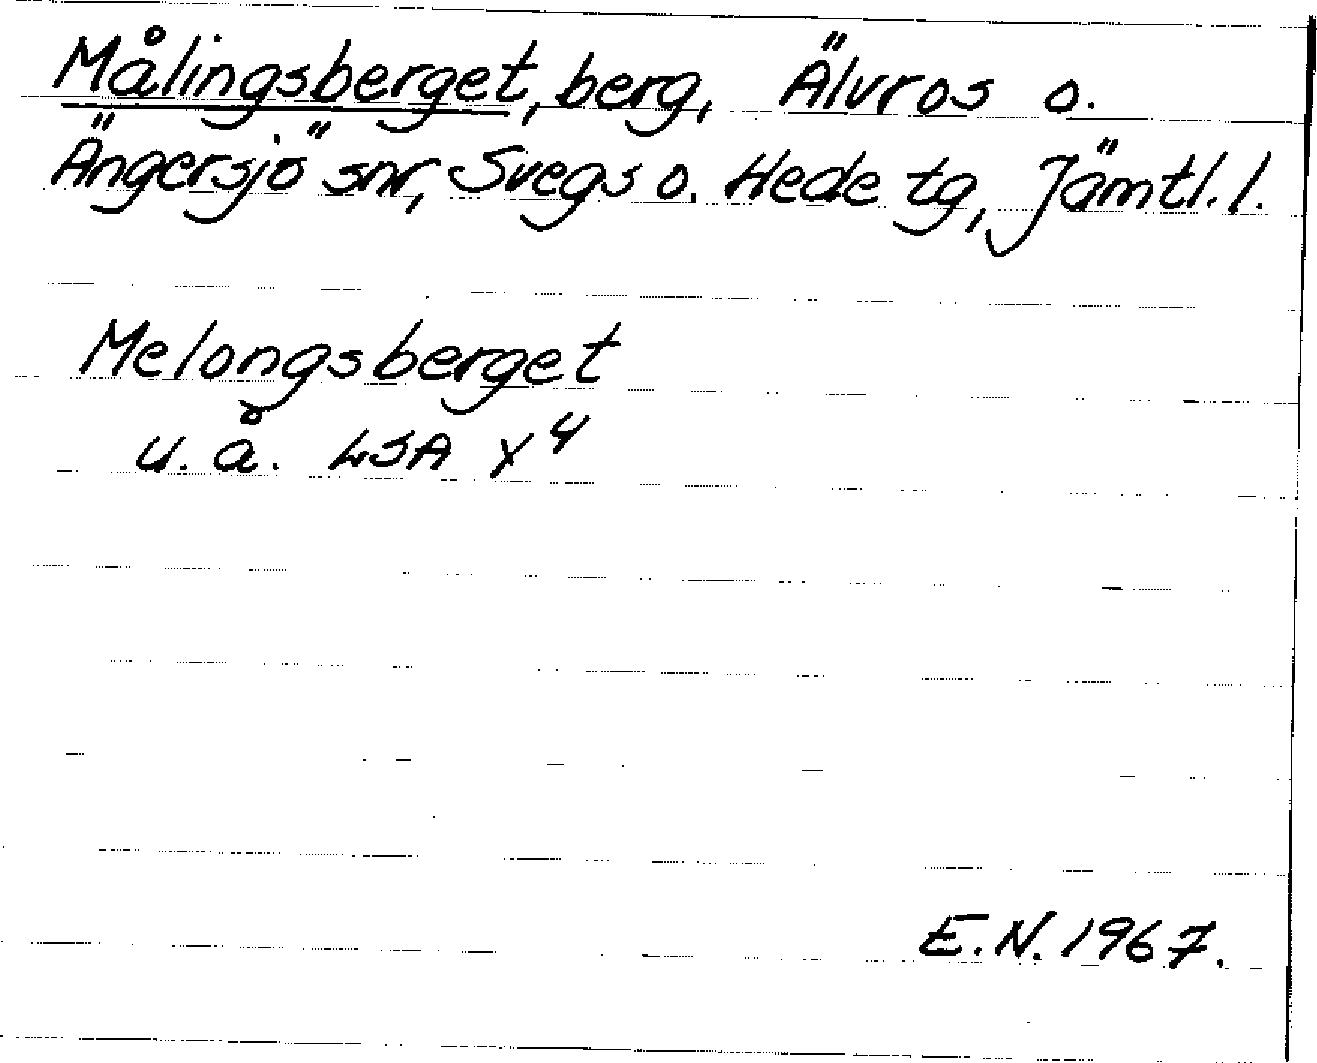 Målingsberget, berg, Älvros o.
Ängersjö snr, Svegs o. Hede tg, Jämtl. l.
Melongsberget
u. å. LSA X 4
E. N. 1967.